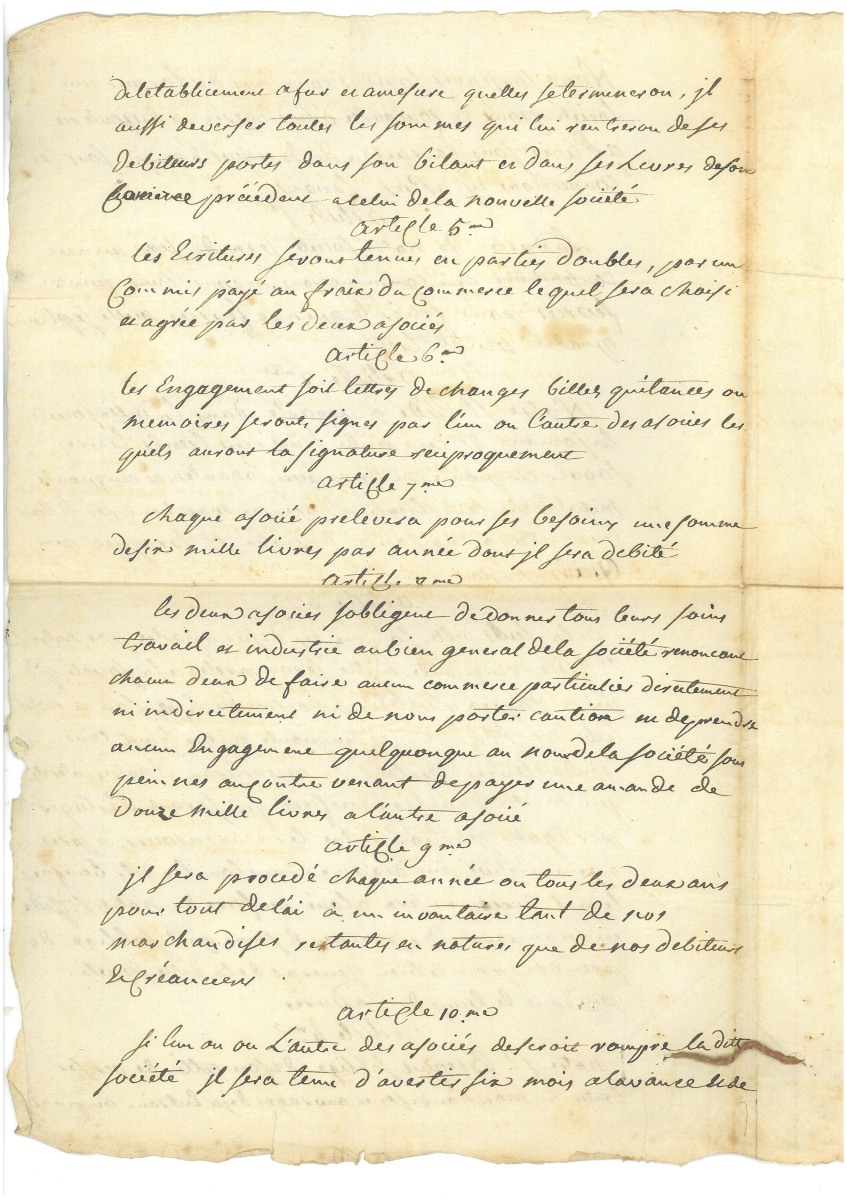 deletablicement a fur et amesure quelles se termineron, jl
aussi deverser toutes les sommes qui lui rentreron de ses
Debiteurs portes dans son bilant et dans ses Livres de son
Comerce précédent a celui de la nouvelle société
article 5.me
les Ecritures seront tenues en parties doubles, par un
Commis payé au fraix du commerce lequel sera choisi
et agrée par les deux asociés
article 6.me
les Engagement soit lettres de changes billets quitances ou
memoires seronts signes par l'un ou l'autre des asociés les
quéls auront la signature reciproquement
article 7.me
chaque asocié prelevera pour ses besoins une somme
de six mille livres par année dont jl sera debité
article 8.me
les deux asocies sobligent de donner tous leurs soins
travail et industrie au bien general de la société renoncant
chacun deux de faire aucun commerce particulier directement
ni indirectement ni de nous porter caution ni de prendre
aucun Engagement quelquonque au nom de la société sous
peinnes au contre venant de payer une amande de
Douze Mille livres a l'autre asocié
article 9.me
jl sera procedé chaque année ou tous les deux ans
pour tout delai à un invantaire tant de nos
marchandises restantes en natures que de nos debiteurs
Et Créanciers
article 10.me
si lun ou ou L'autre des asociés desiroit rompre la ditte
société jl sera tenu d'avertir six mois alavance et de